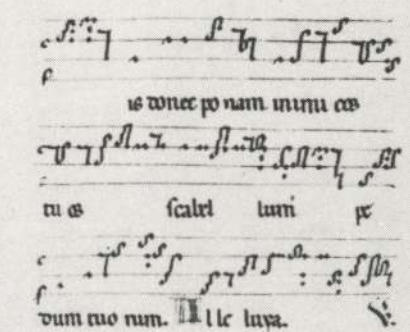 is donec po nam inimi cos
tu os scabel lum pe
dum tuo rum. A l le luya. ℣.